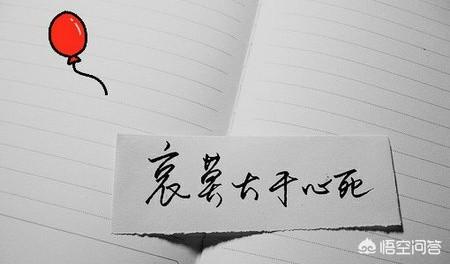 哀莫大于心死
悟空问答